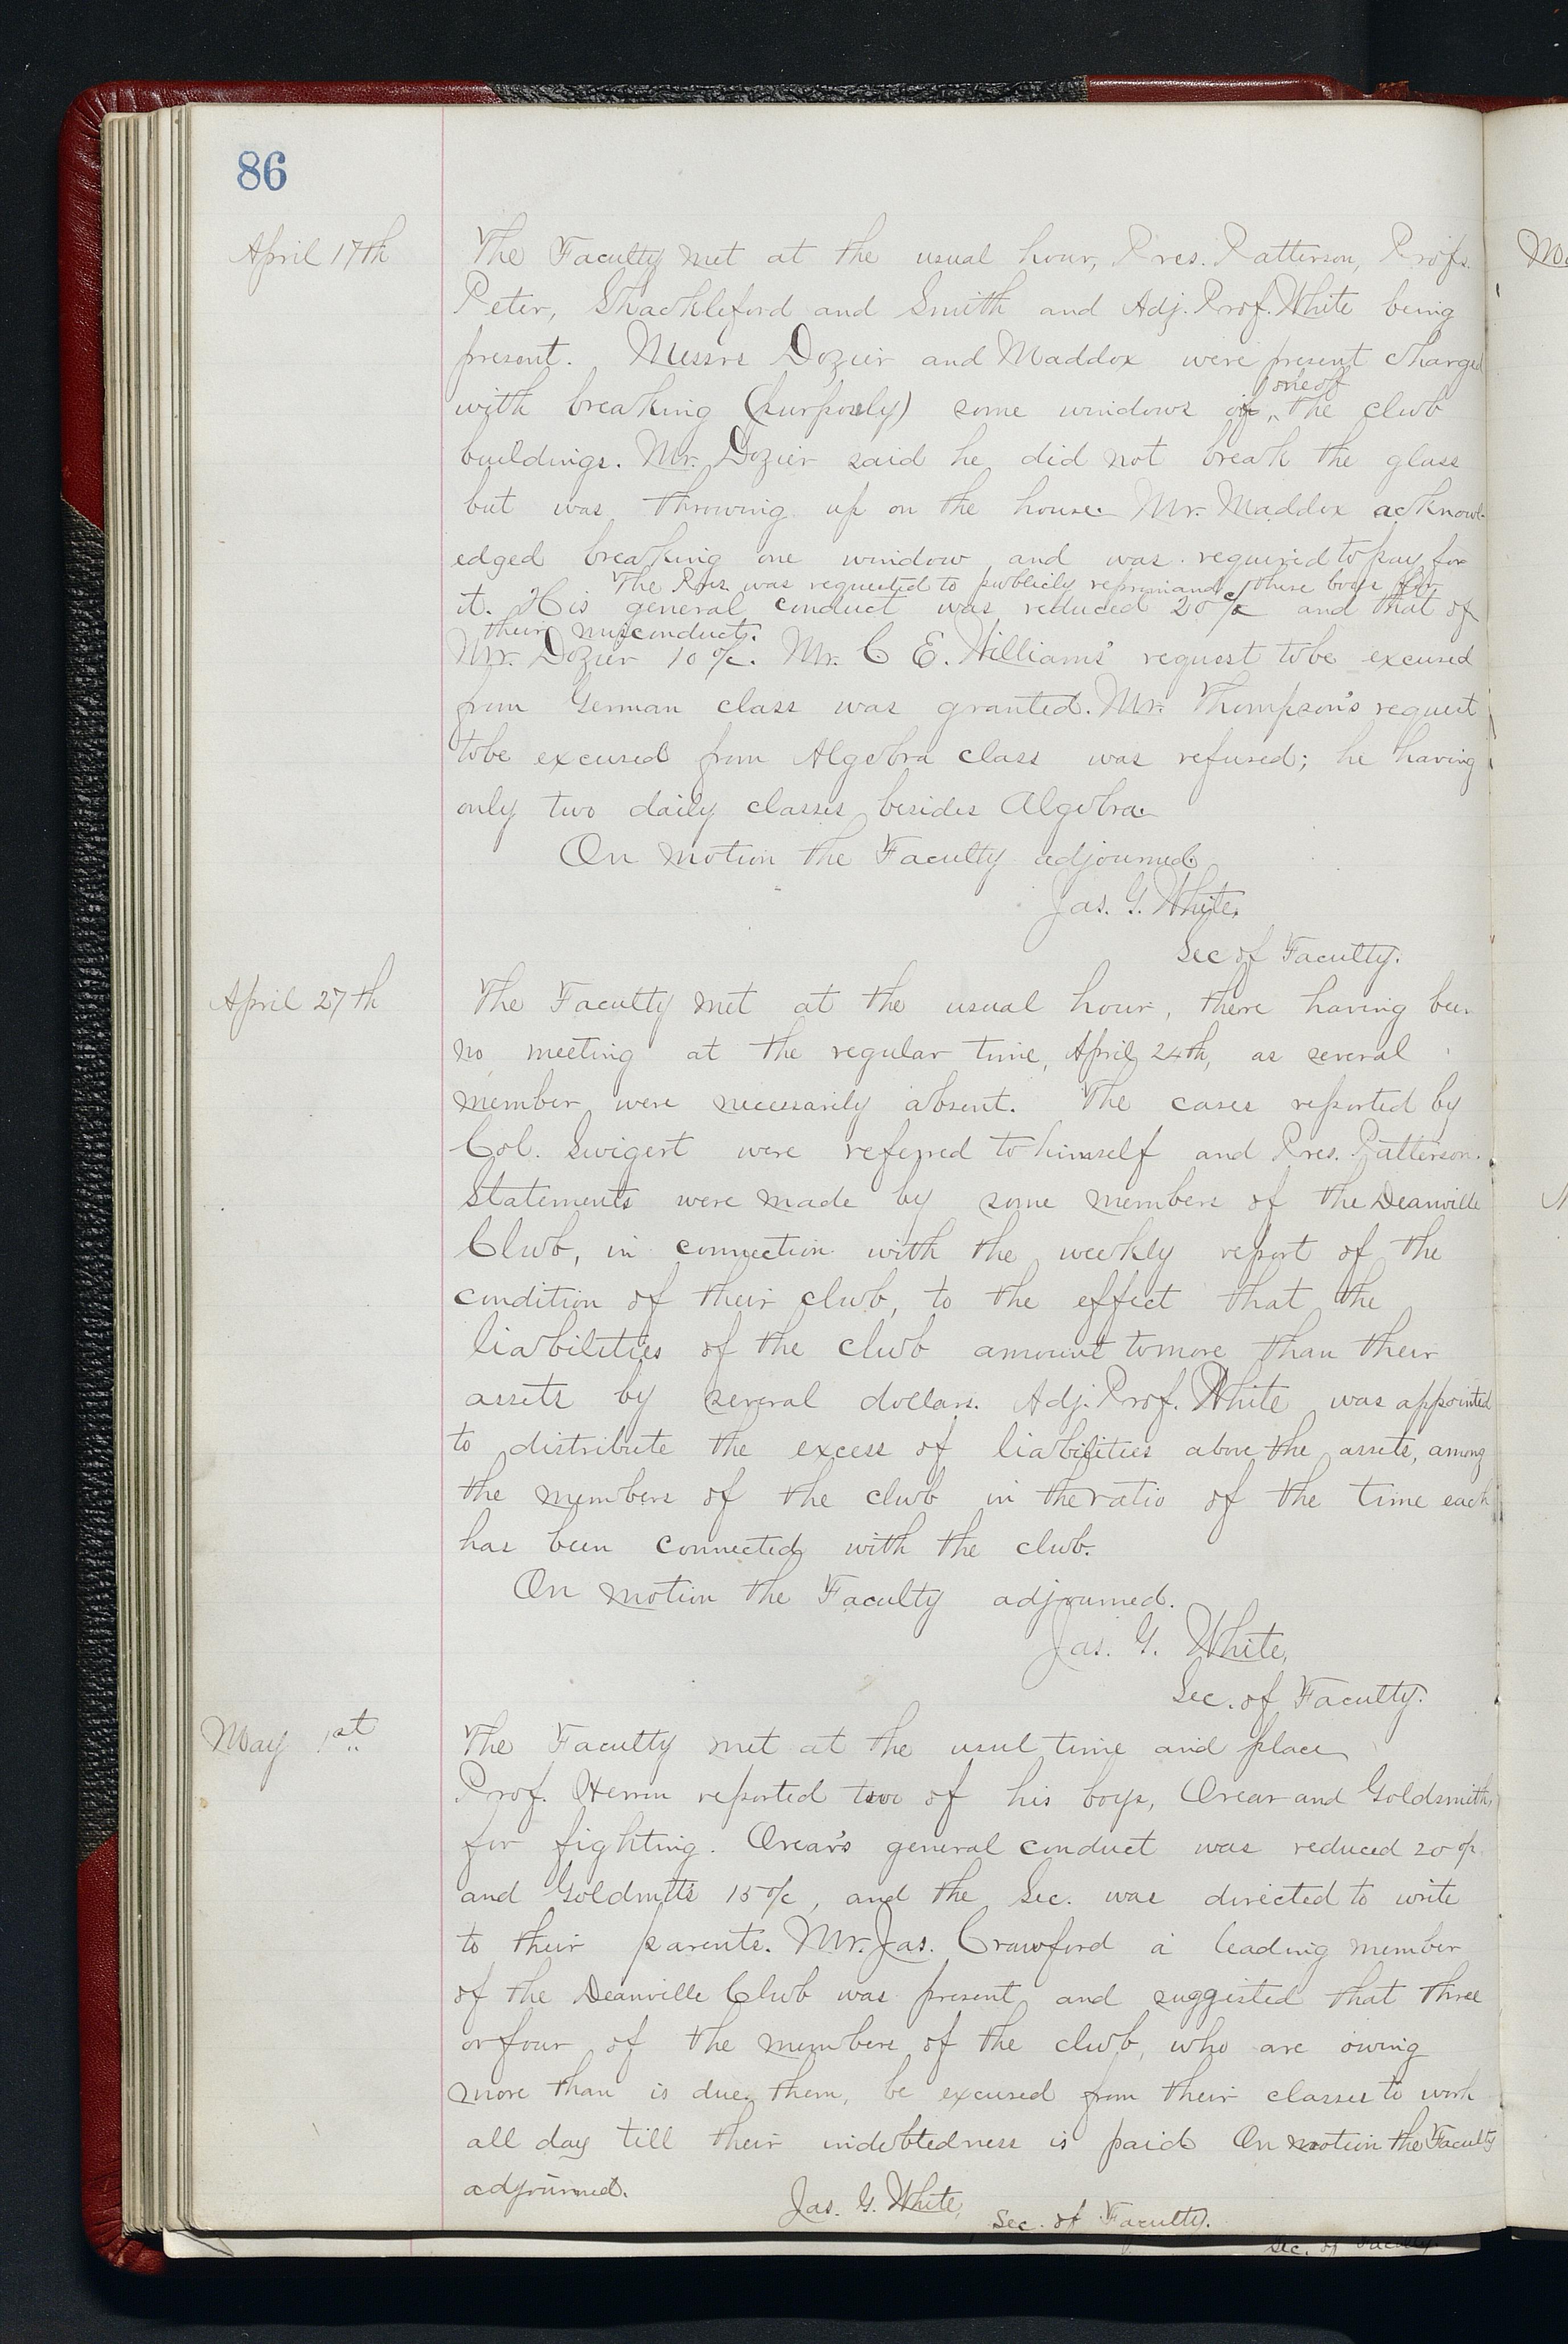 86
April 17th
The Faculty met at the usual hour, Pres. Patterson, Profs.
Peter, Shackleford and Smith and Adj. Prof. White being
present. Messrs Dozier and Maddox were present charged
one of
with breaking (purposely) some windows of the club
buildings. Mr. Dozier said he did not break the glass
but was throwing up on the house. Mr. Maddox acknowl-
edged breaking one window and was required to pay for
The Pres. was requested to publicly reprimand these boys for
it. His general conduct was reduced 20% and that of
their misconduct.
Mr. Dozier 10%. Mr. C. E. Williams' request to be excused
from German class was granted. Mr. Thompson's request
to be excused from Algebra class was refused; he having
only two daily classes besides Algebra.
On motion the Faculty adjourned.
Jas. G. White,
Sec of Faculty.
April 27th
The Faculty met at the usual hour, there having been
no meeting at the regular time, April 24th, as several
member were necessarily absent. The cases reported by
Col. Swigert were referred to himself and Pres. Patterson.
Statements were made by some members of the Deanville
Club, in connection with the weekly report of the
condition of their club, to the effect that the
liabilities of the club amount to more than their
assets by several dollars. Adj. Prof. White was appointed
to distribute the excess of liabilities above the assets, among
the members of the club in the ratio of the time each
has been connected with the club.
On motion the Faculty adjourned.
Jas. G. White,
Sec. of Faculty.
May 1st
The Faculty met at the usul time and place
Prof. Herrn reported two of his boys, Orear and Goldsmith,
for fighting. Orear's general conduct was reduced 20%
and Goldmith's 15%, and the Sec. was directed to write
to their parents. Mr. Jas. Crawford a leading member
of the Deanville Club was present and suggested that three
or four of the members of the club, who are owing
more than is due them, be excused from their classes to work
all day till their indebtedness is paid On motion the Faculty
adjourned.
Jas. G. White,
Sec. of Faculty.
Sec. of Faculty.